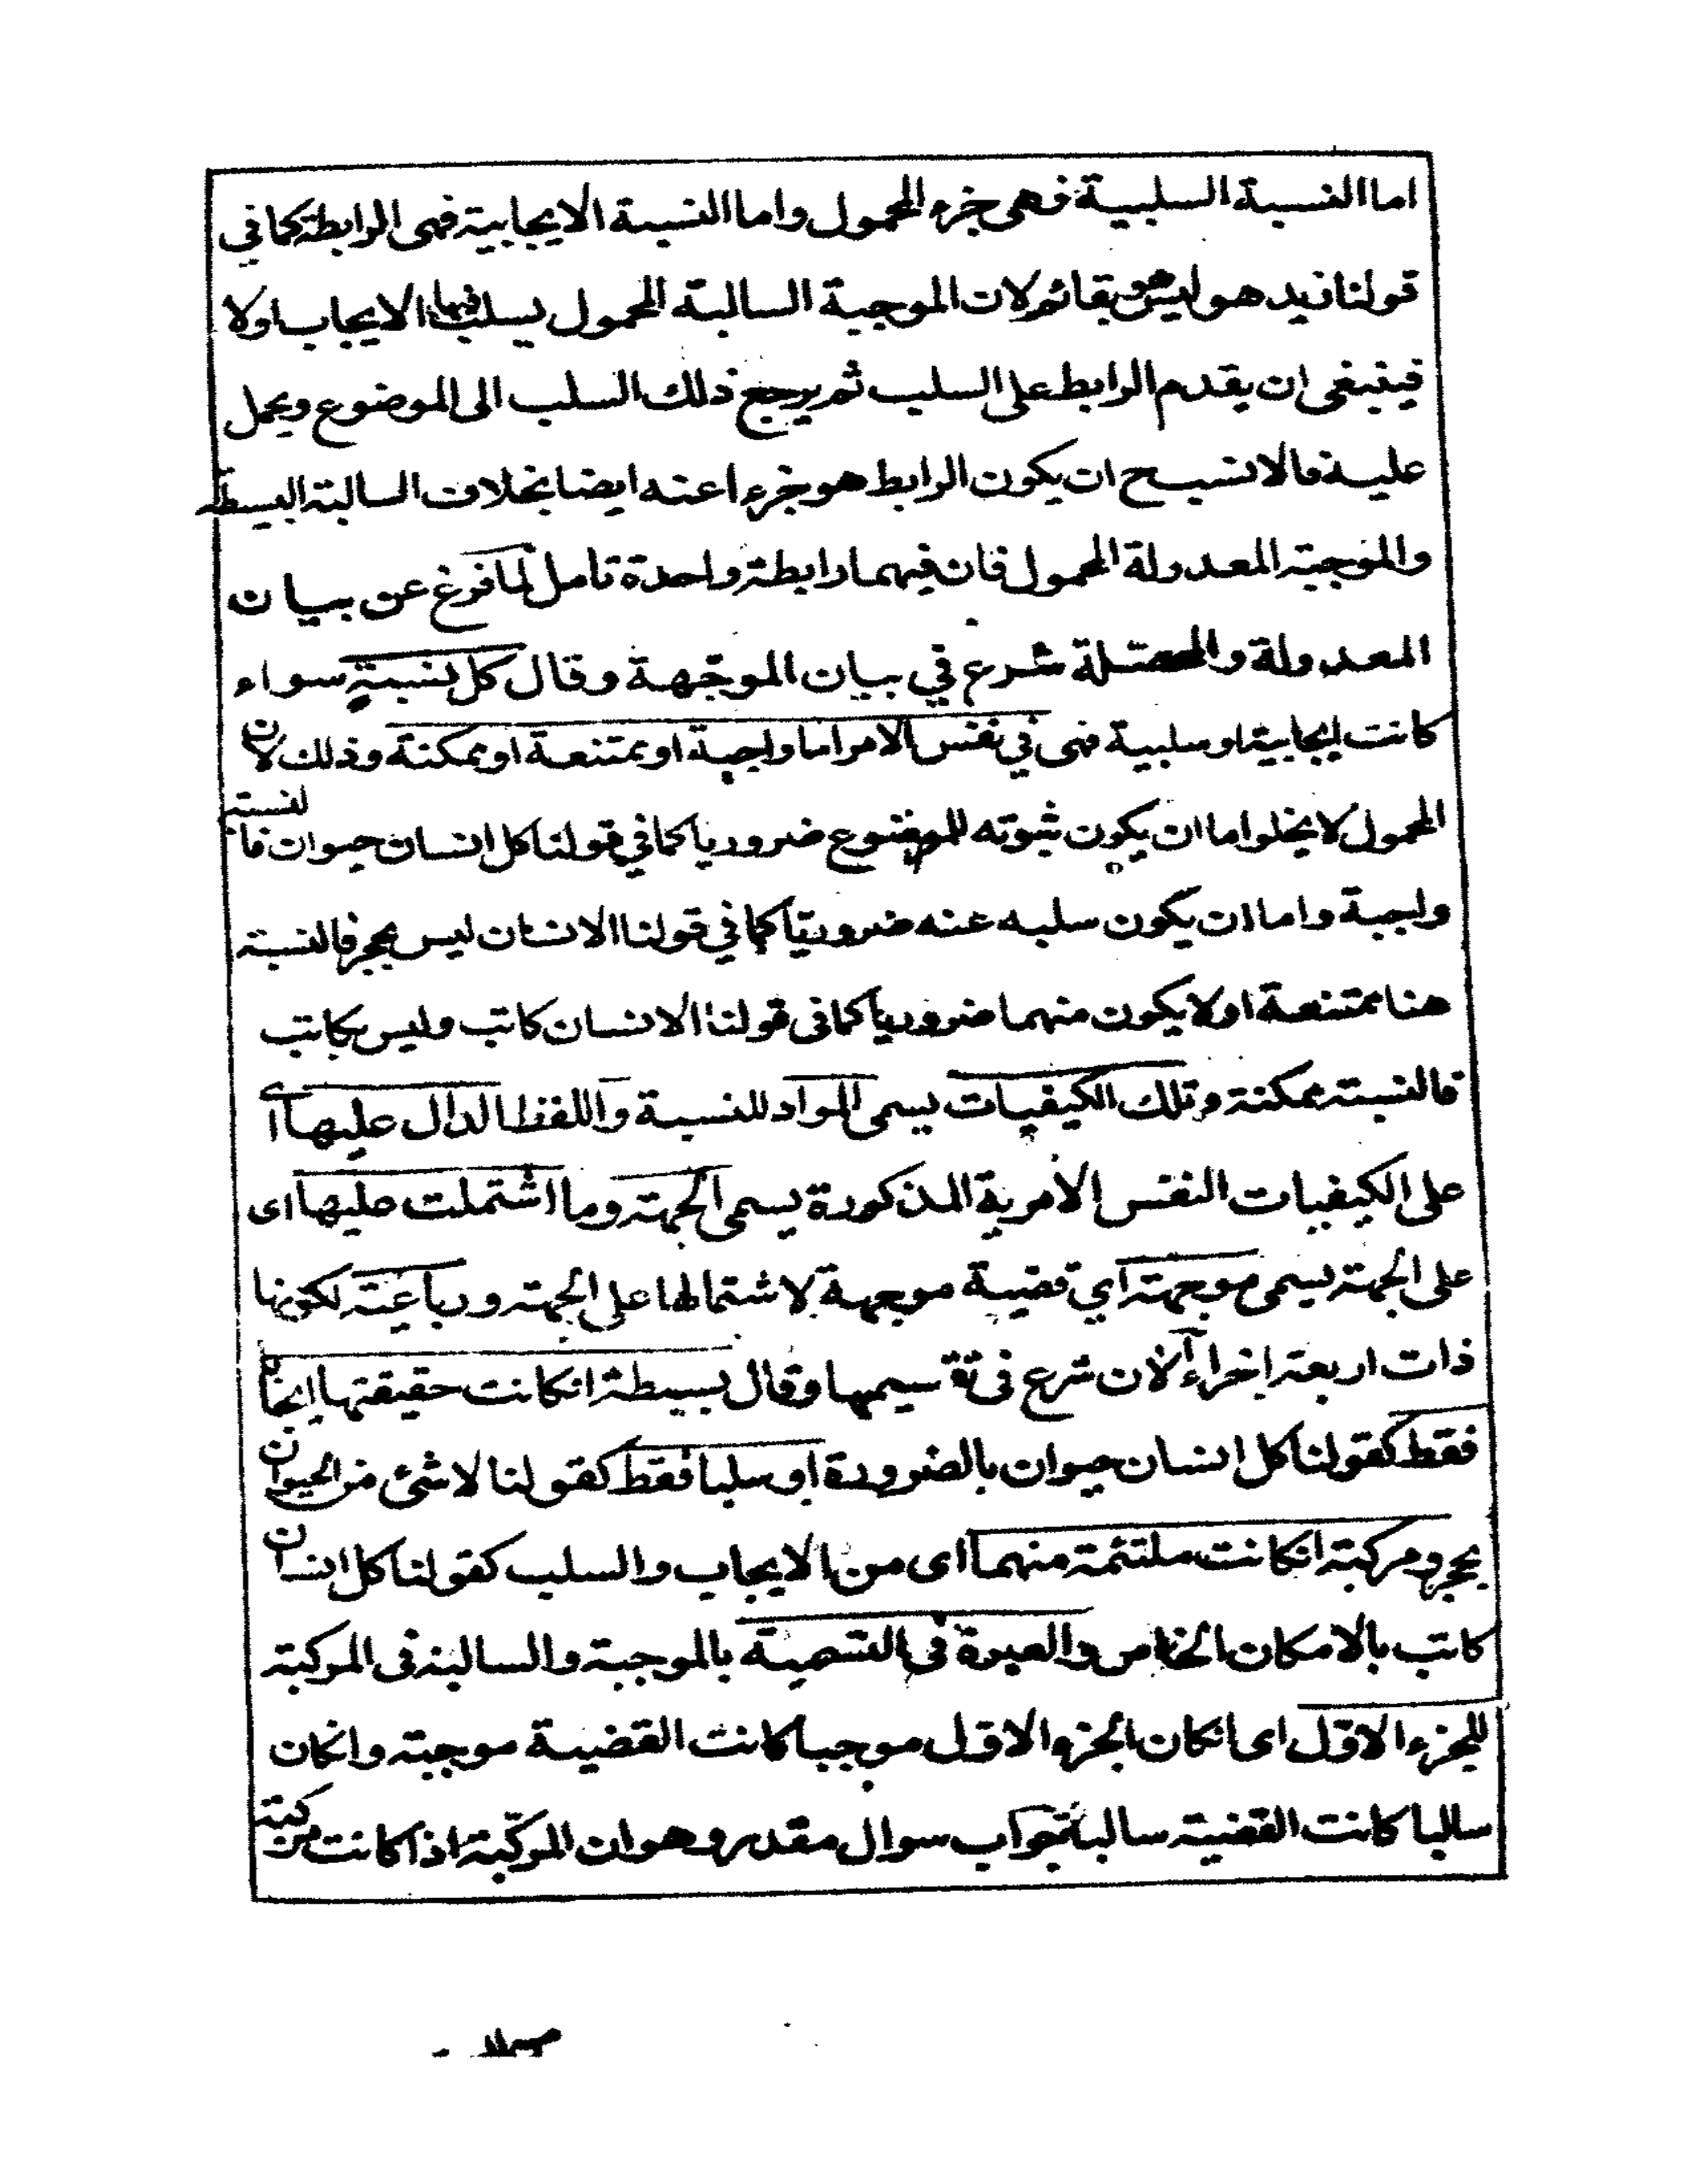 اما النسبة السلبية فهى جزء المحمول واما النسبة الايجابية فهى الرابطة كما في
قولنا زيد هو ليس هو بقائم لان الموجبة السالبة المحمول يسلب فيها الايجاب اولا
فينبغى ان يقدم الرابط على السلب ثم يرجع ذلك السلب الى الموضوع ويحمل
عليه فالانسب ان يكون الرابط هو جزء اعنه ايضا بخلاف السالبة البسيطة
والموجبة المعدولة المحمول فان فيهما رابطة واحدة تامل لما فرغ عن بيان
المعدولة والمحصلة شرع في بيان الموجّهة وقال كل نسبةٍ سواء
كانت ايجابية او سلبية فهى في نفس الامر اما واجبة او ممتنعة او ممكنة وذلك لان
المحمول لا يخلو اما ان يكون ثبوته للموضوع ضروريا كما في قولنا كل انسان حيوان فالنسبة
واجبة واما ان يكون سلبه عنه ضروريّا كما في قولنا الانسان ليس بحجر فالنسبة
هنا ممتنعة او لا يكون منهما ضروريا كما فى قولنا الانسان كاتب وليس بكاتب
فالنسبة ممكنة وتلك الكيفيات يسمى المواد للنسبة واللفظ الدال عليها اى
على الكيفيات النفس الامرية المذكورة يسمى الجهة وما اشتملت عليها اى
على الجهة يسمى موجهة اي قضية موجهة لاشتمالها على الجهة ورباعية لكونها
ذات اربعة اجزاء الان شرع فى تقسيمها وقال بسيطة انكانت حقيقتها ايجابا
فقط كقولنا كل انسان حيوان بالضرورة او سلبا فقط كقولنا لا شئ من الحيوان
بحجر ومركبة انكانت ملتئمة منهما اى من الايجاب والسلب كقولنا كل انسان
كاتب بالامكان الخاص والعبرة فى التسمية بالموجبة والسالبة فى المركبة
للجزء الاوّل اى انكان الجزء الاوّل موجبا كانت القضية موجبة وانكان
سالبا كانت القضية سالبة جواب سوال مقدر وهو ان المركّبة اذا كانت مركبة